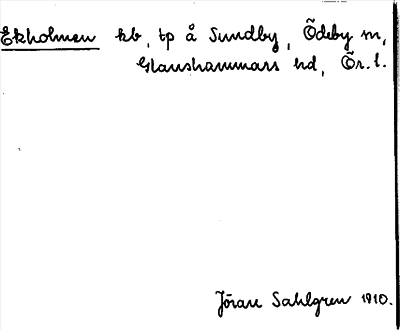 Ekholmen kb, tp å Sundby, Ödeby m,
Glanshammars hd, Ör. l.
Jöran Sahlgren 1910.